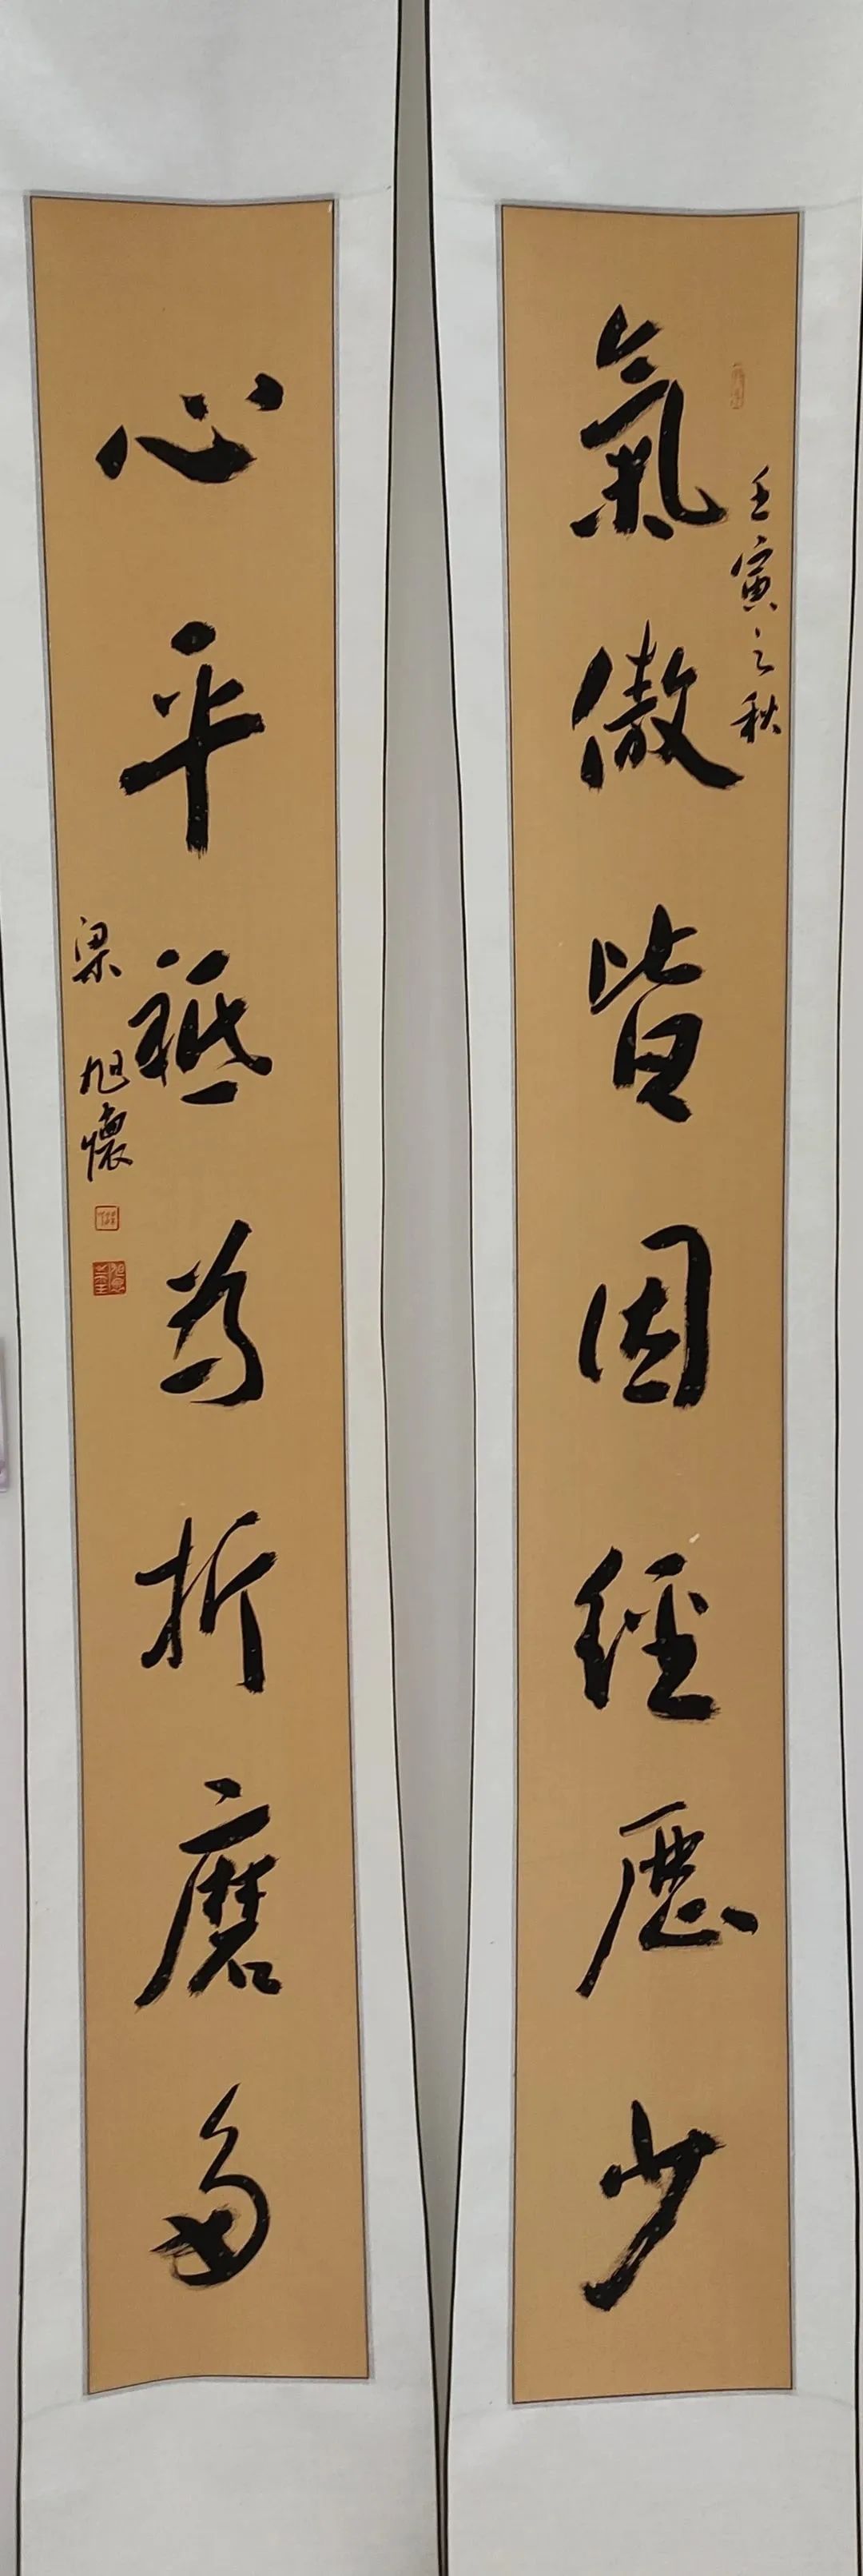 氣傲皆因經歷少
壬寅之秋
心平祗為折磨多
梁旭懷